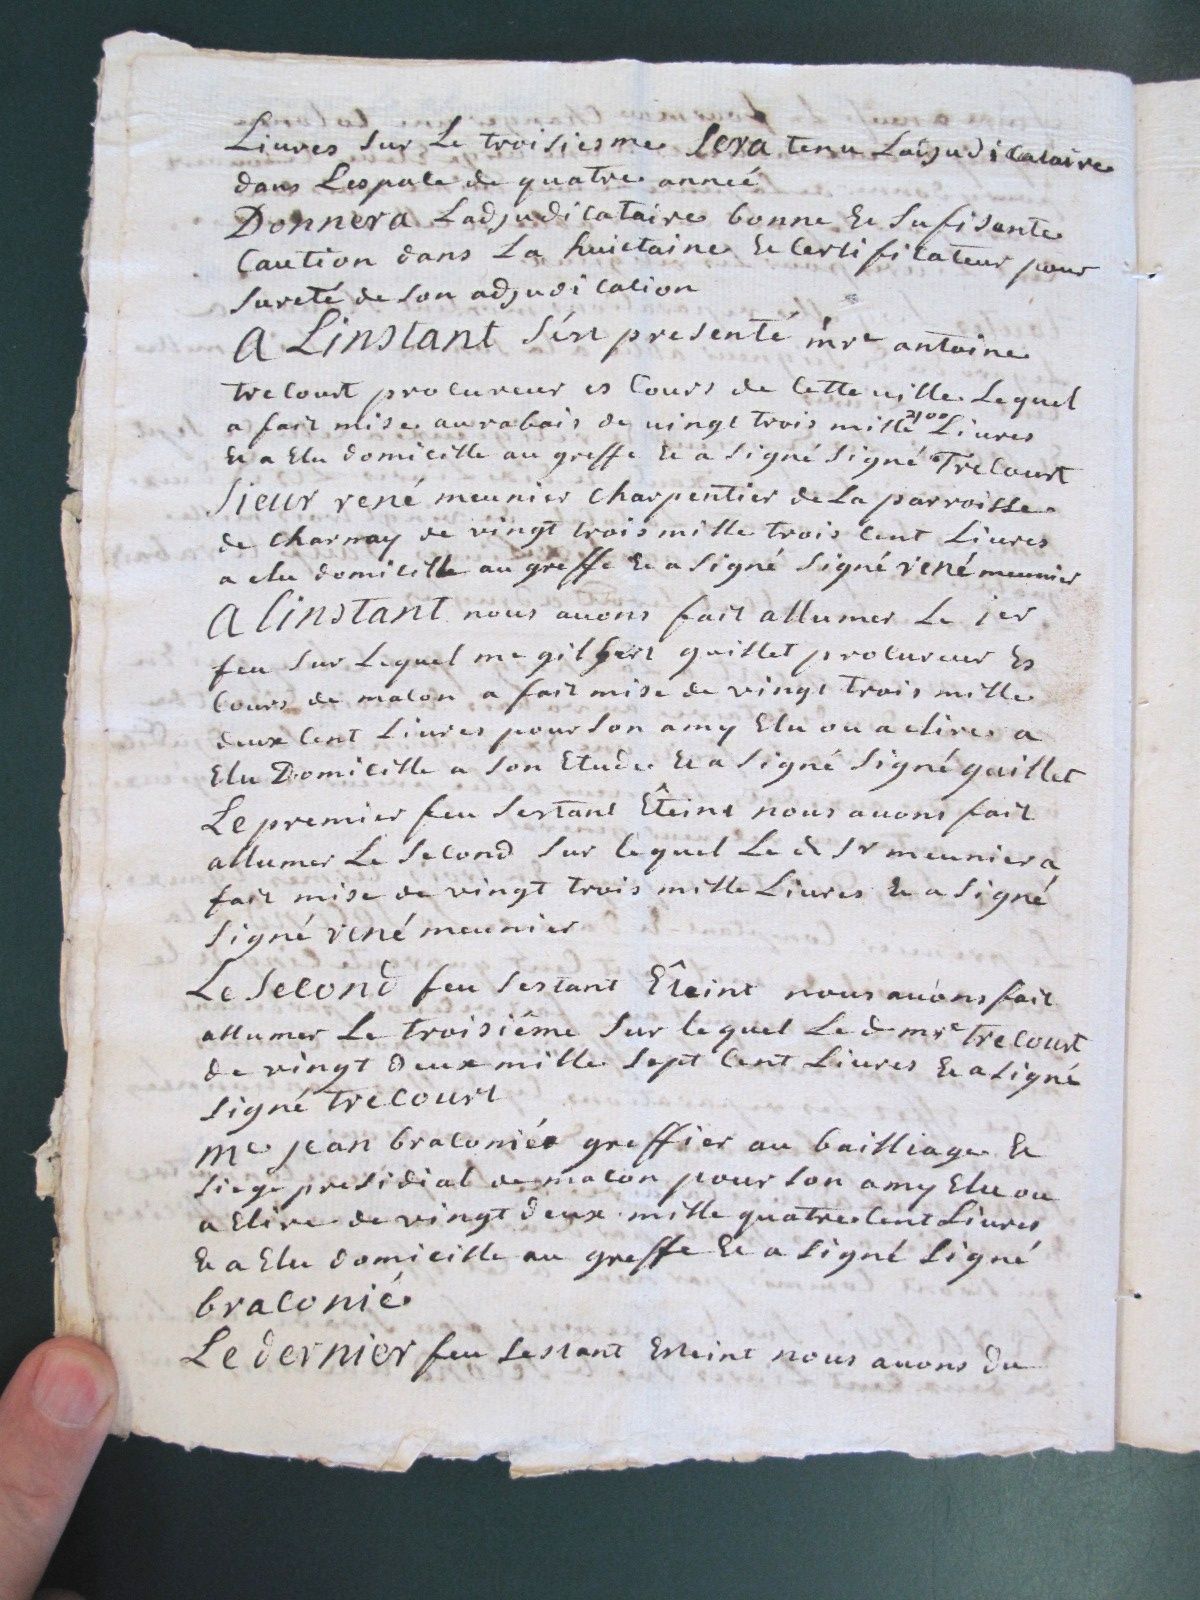 Liures sur Le troisiesme Sera tenu Ladjudicataire
dans Lespace de quatre anneé
Donnera Ladjudicataire bonne Et Sufisente
Caution dans La huictaine Et Certificateur pour
Sureté de Son adjudication
A Linstant S'est presenté mre antoine
trecourt procureur es Cours de Cette uille Lequel
a fait mise au rabais de uingt trois mille Liures
Et a Elu domicille au greffe Et a Signé Signé Trecourt
Sieur rené meunier Charpentier de La parroisse
de Charnay de vingt trois mille trois Cent Liures
a elu domicille au greffe Et a Signé Signé rené meunier
A Linstant nous auons fait allumer Le jer
feu Sur Lequel me gilbert guillet procureur Es
Cours de macon a fait mise de vingt trois mille
deux Cent Liures pour Son amy Elu ou a elire a
Elu Domicille a Son Etude Et a Signé Signé guillet
Le premier feu Sestant Êteint nous auons fait
allumer Le Second Sur lequel Le d Sr meunier a
fait mise de vingt trois mille Liures Et a Signé
Signé rené meunier
Le Second feu Sestant Êteint nous auons fait
allumer Le troisiême Sur lequel Le d mre trecourt
de vingt deux mille Sept Cent Liures Et a Signé
Signé Trecourt
Me jean braconiér greffier au bailliage Et
Siege presidial de macon pour Son amy Elu ou
a Elire de vingt deux mille quatre Cent Liures
Et a Elu domicille au greffe Et a Signé Signé
braconié
Le dernier feu Sestant Esteint nous auons du